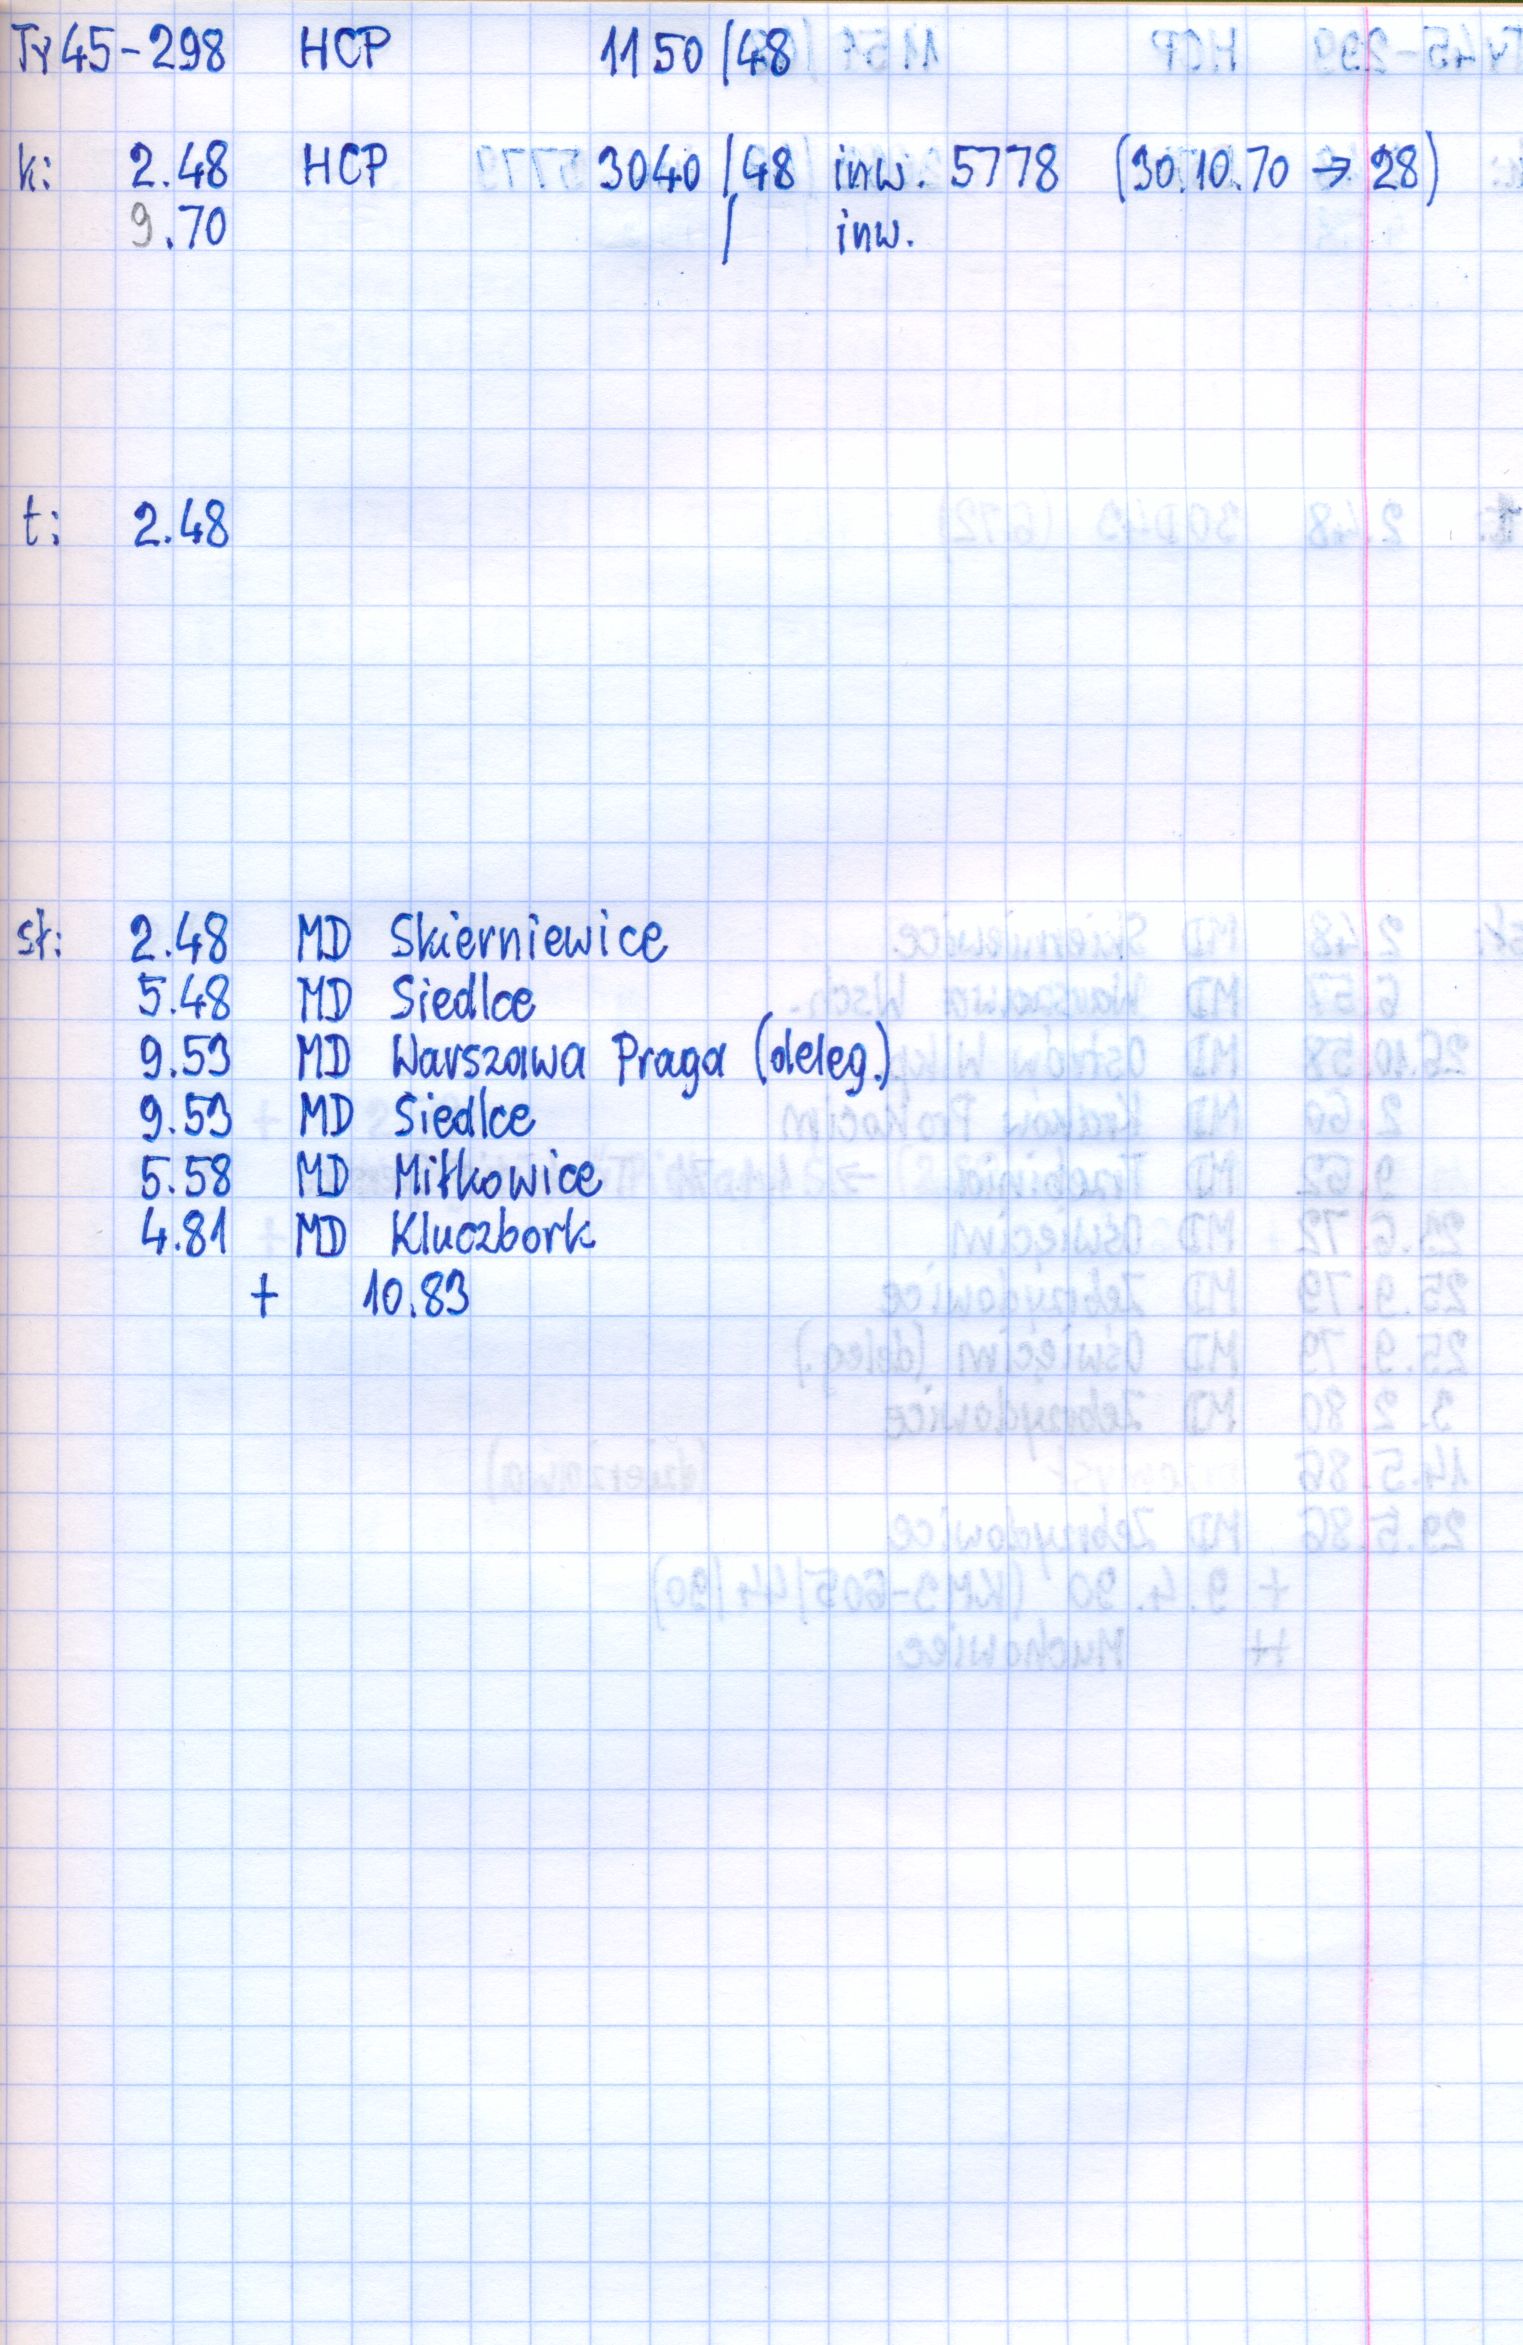 Ty45-298 HCP 1150/48
k: 2.48 HCP 3040/48 inw. 5778 (30.10.70 → 28)
9.70 / inw.
t: 2.48
st: 2.48 MD Skierniewice
5.48 MD Siedlce
9.53 MD Warszawa Praga (deleg.)
9.53 MD Siedlce
5.58 MD Miłkowice
4.81 MD Kluczbork
+ 10.83